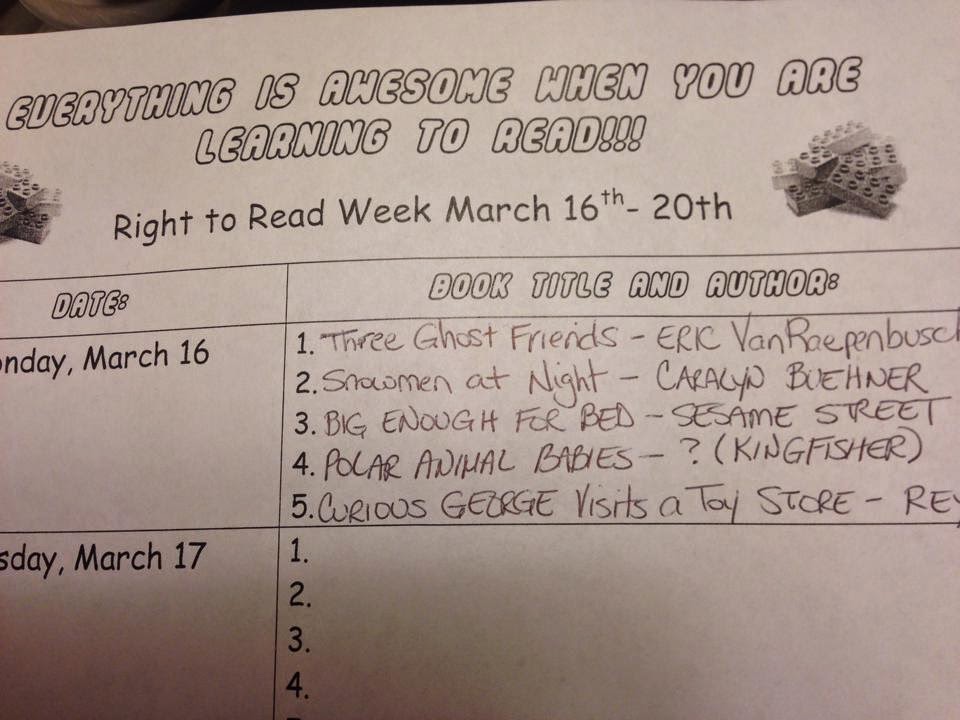 EVERYTHING IS AWESOME WHEN YOU ARE
LEARNING TO READ!!!
Right to Read Week March 16th- 20th
DATE:
BOOK TITLE AND AUTHOR:
onday, March 16
1. Three Ghost Friends - ERIC VanRaepenbusch
2. Snowmen at Night - CARALYN BUEHNER
3. BIG ENOUGH FOR BED - SESAME STREET
4. POLAR ANIMAL BABIES - ? (KINGFISHER)
5. CURIOUS GEORGE Visits a Toy STORE - REY
sday, March 17
1.
2.
3.
4.